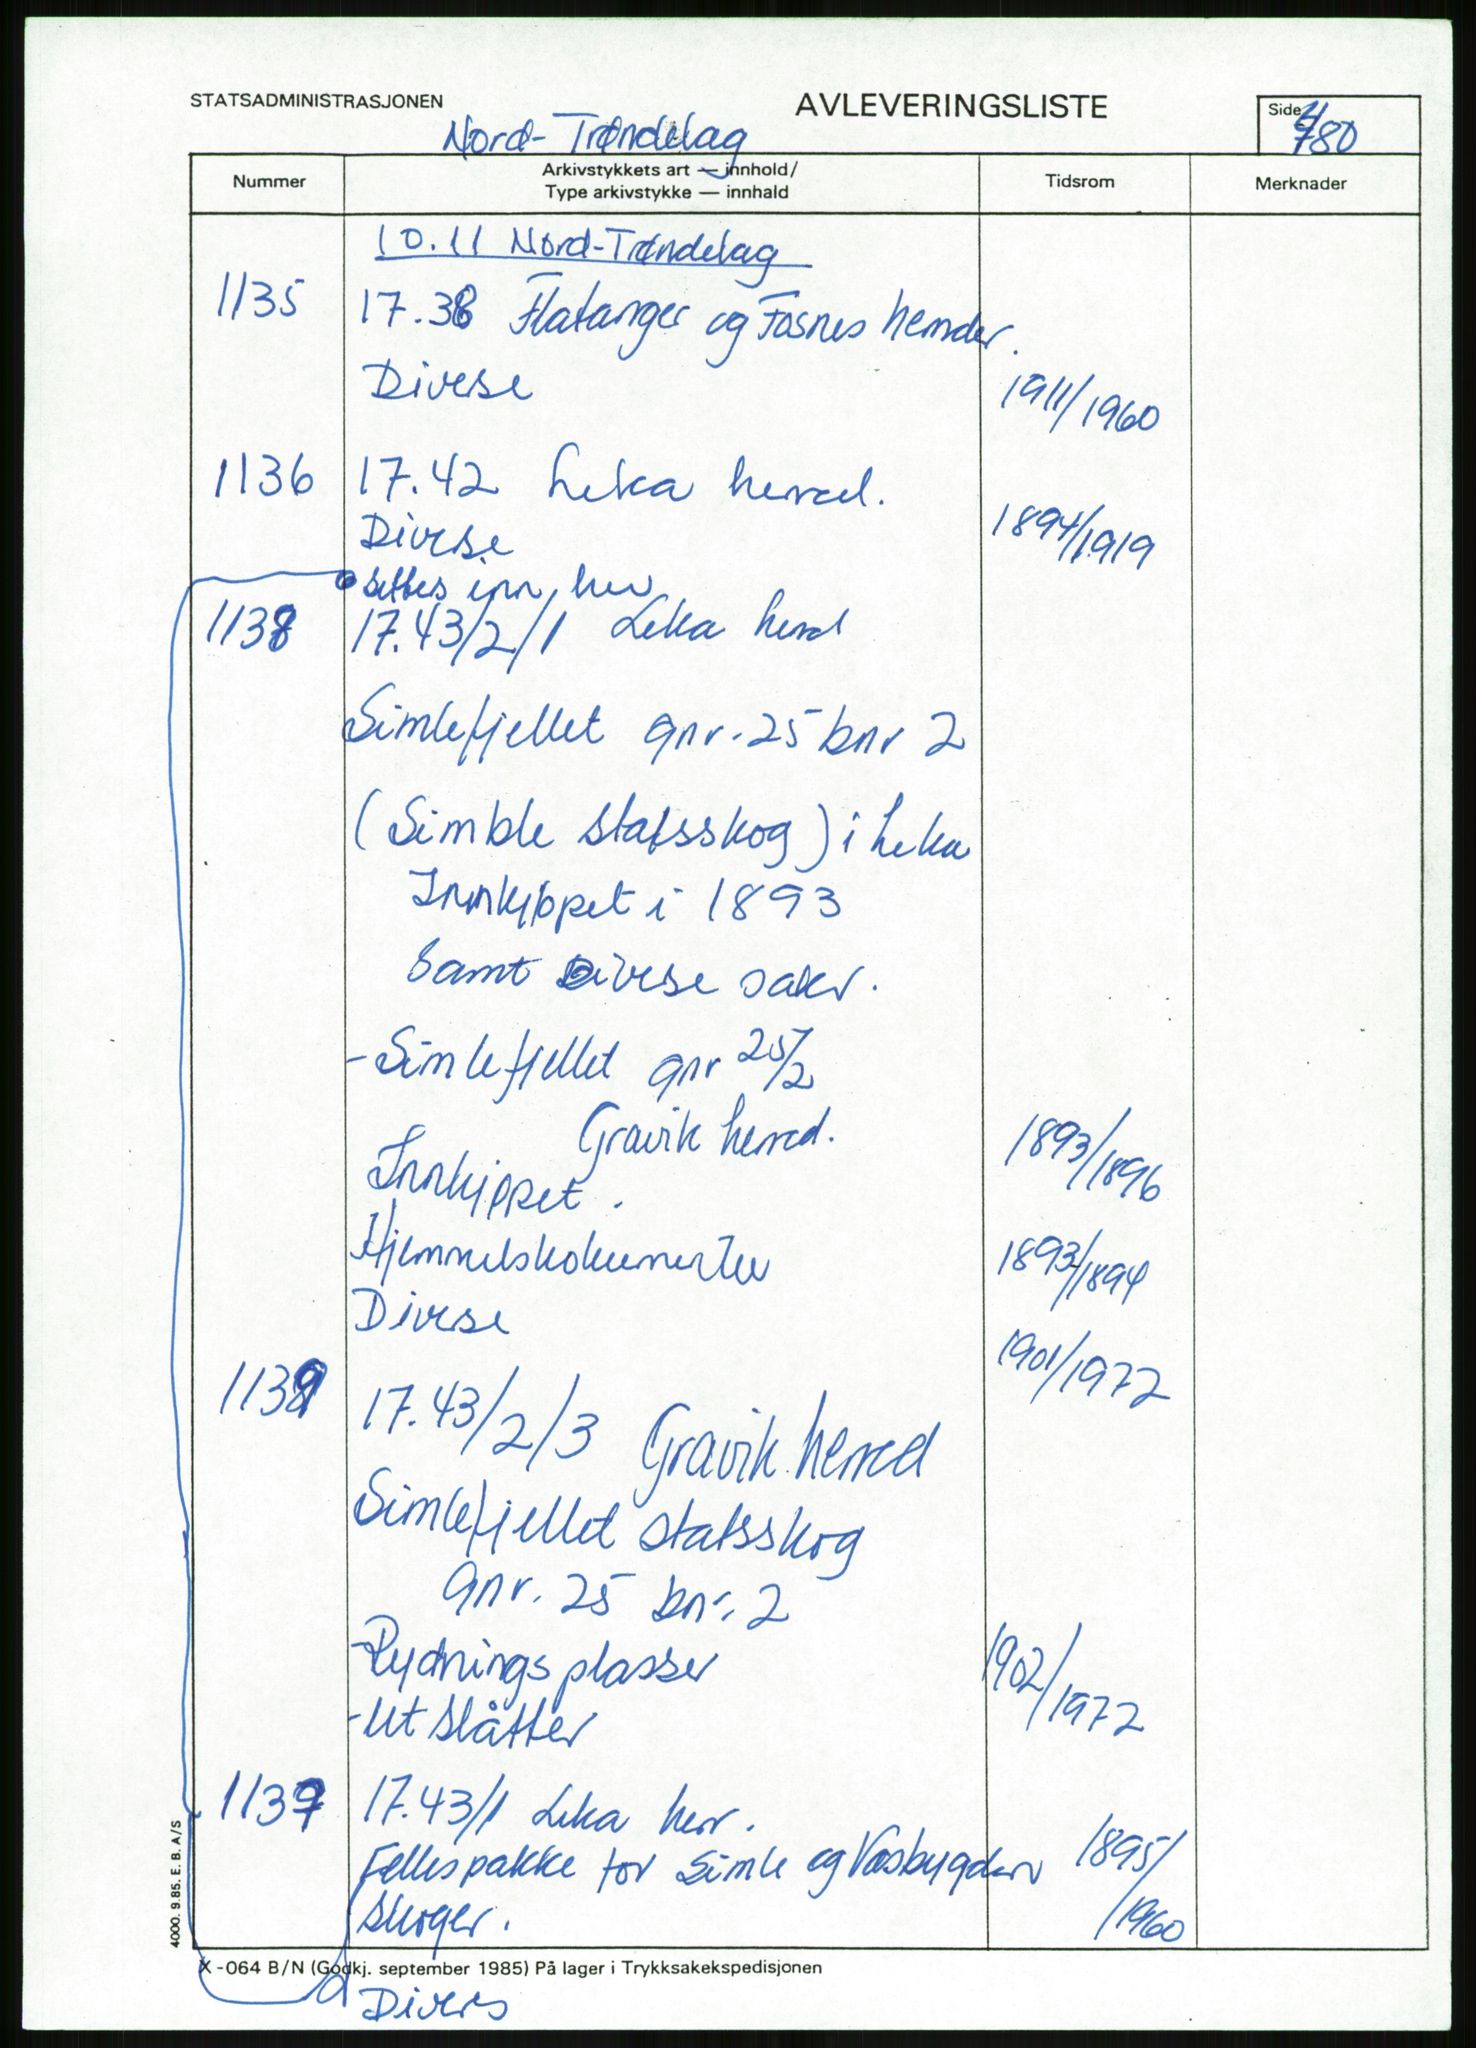 STATSADMINISTRASJONEN
AVLEVERINGSLISTE
Side
780
Nord-Trøndelag
Nummer
Arkivstykkets art — innhold/
Type arkivstykke — innhald
Tidsrom
Merknader
10.11 Nord-Trøndelag
1135 17.38 Flatanger og Fosnes herreder.
Diverse 1911/1960
1136 17.42 Leka herred.
Diverse 1894/1919
settes inn her
1138 17.43/2/1 Leka herred
Simlefjellet gnr. 25 bnr 2
(Simble statsskog) i Leka
Innkjøpet i 1893
Samt Diverse saker.
- Simlefjellet gnr 25/2
Gravik herred. 1893/1896
Innkjøpet.
Hjemmelsdokumenter 1893/1894
Diverse 1901/1972
1139 17.43/2/3 Gravik herred
Simlefjellet statsskog
gnr. 25 bnr. 2
- Rydningsplasser 1902/1972
- Utslåtter
1137 17.43/1 Leka herr.
Fellespakke for Simle og Væsbygden 1895/
skoger. /1960
4000. 9.85. E. B. A/S
X-064 B/N (Godkj. september 1985) På lager i Trykksakekspedisjonen
Divers